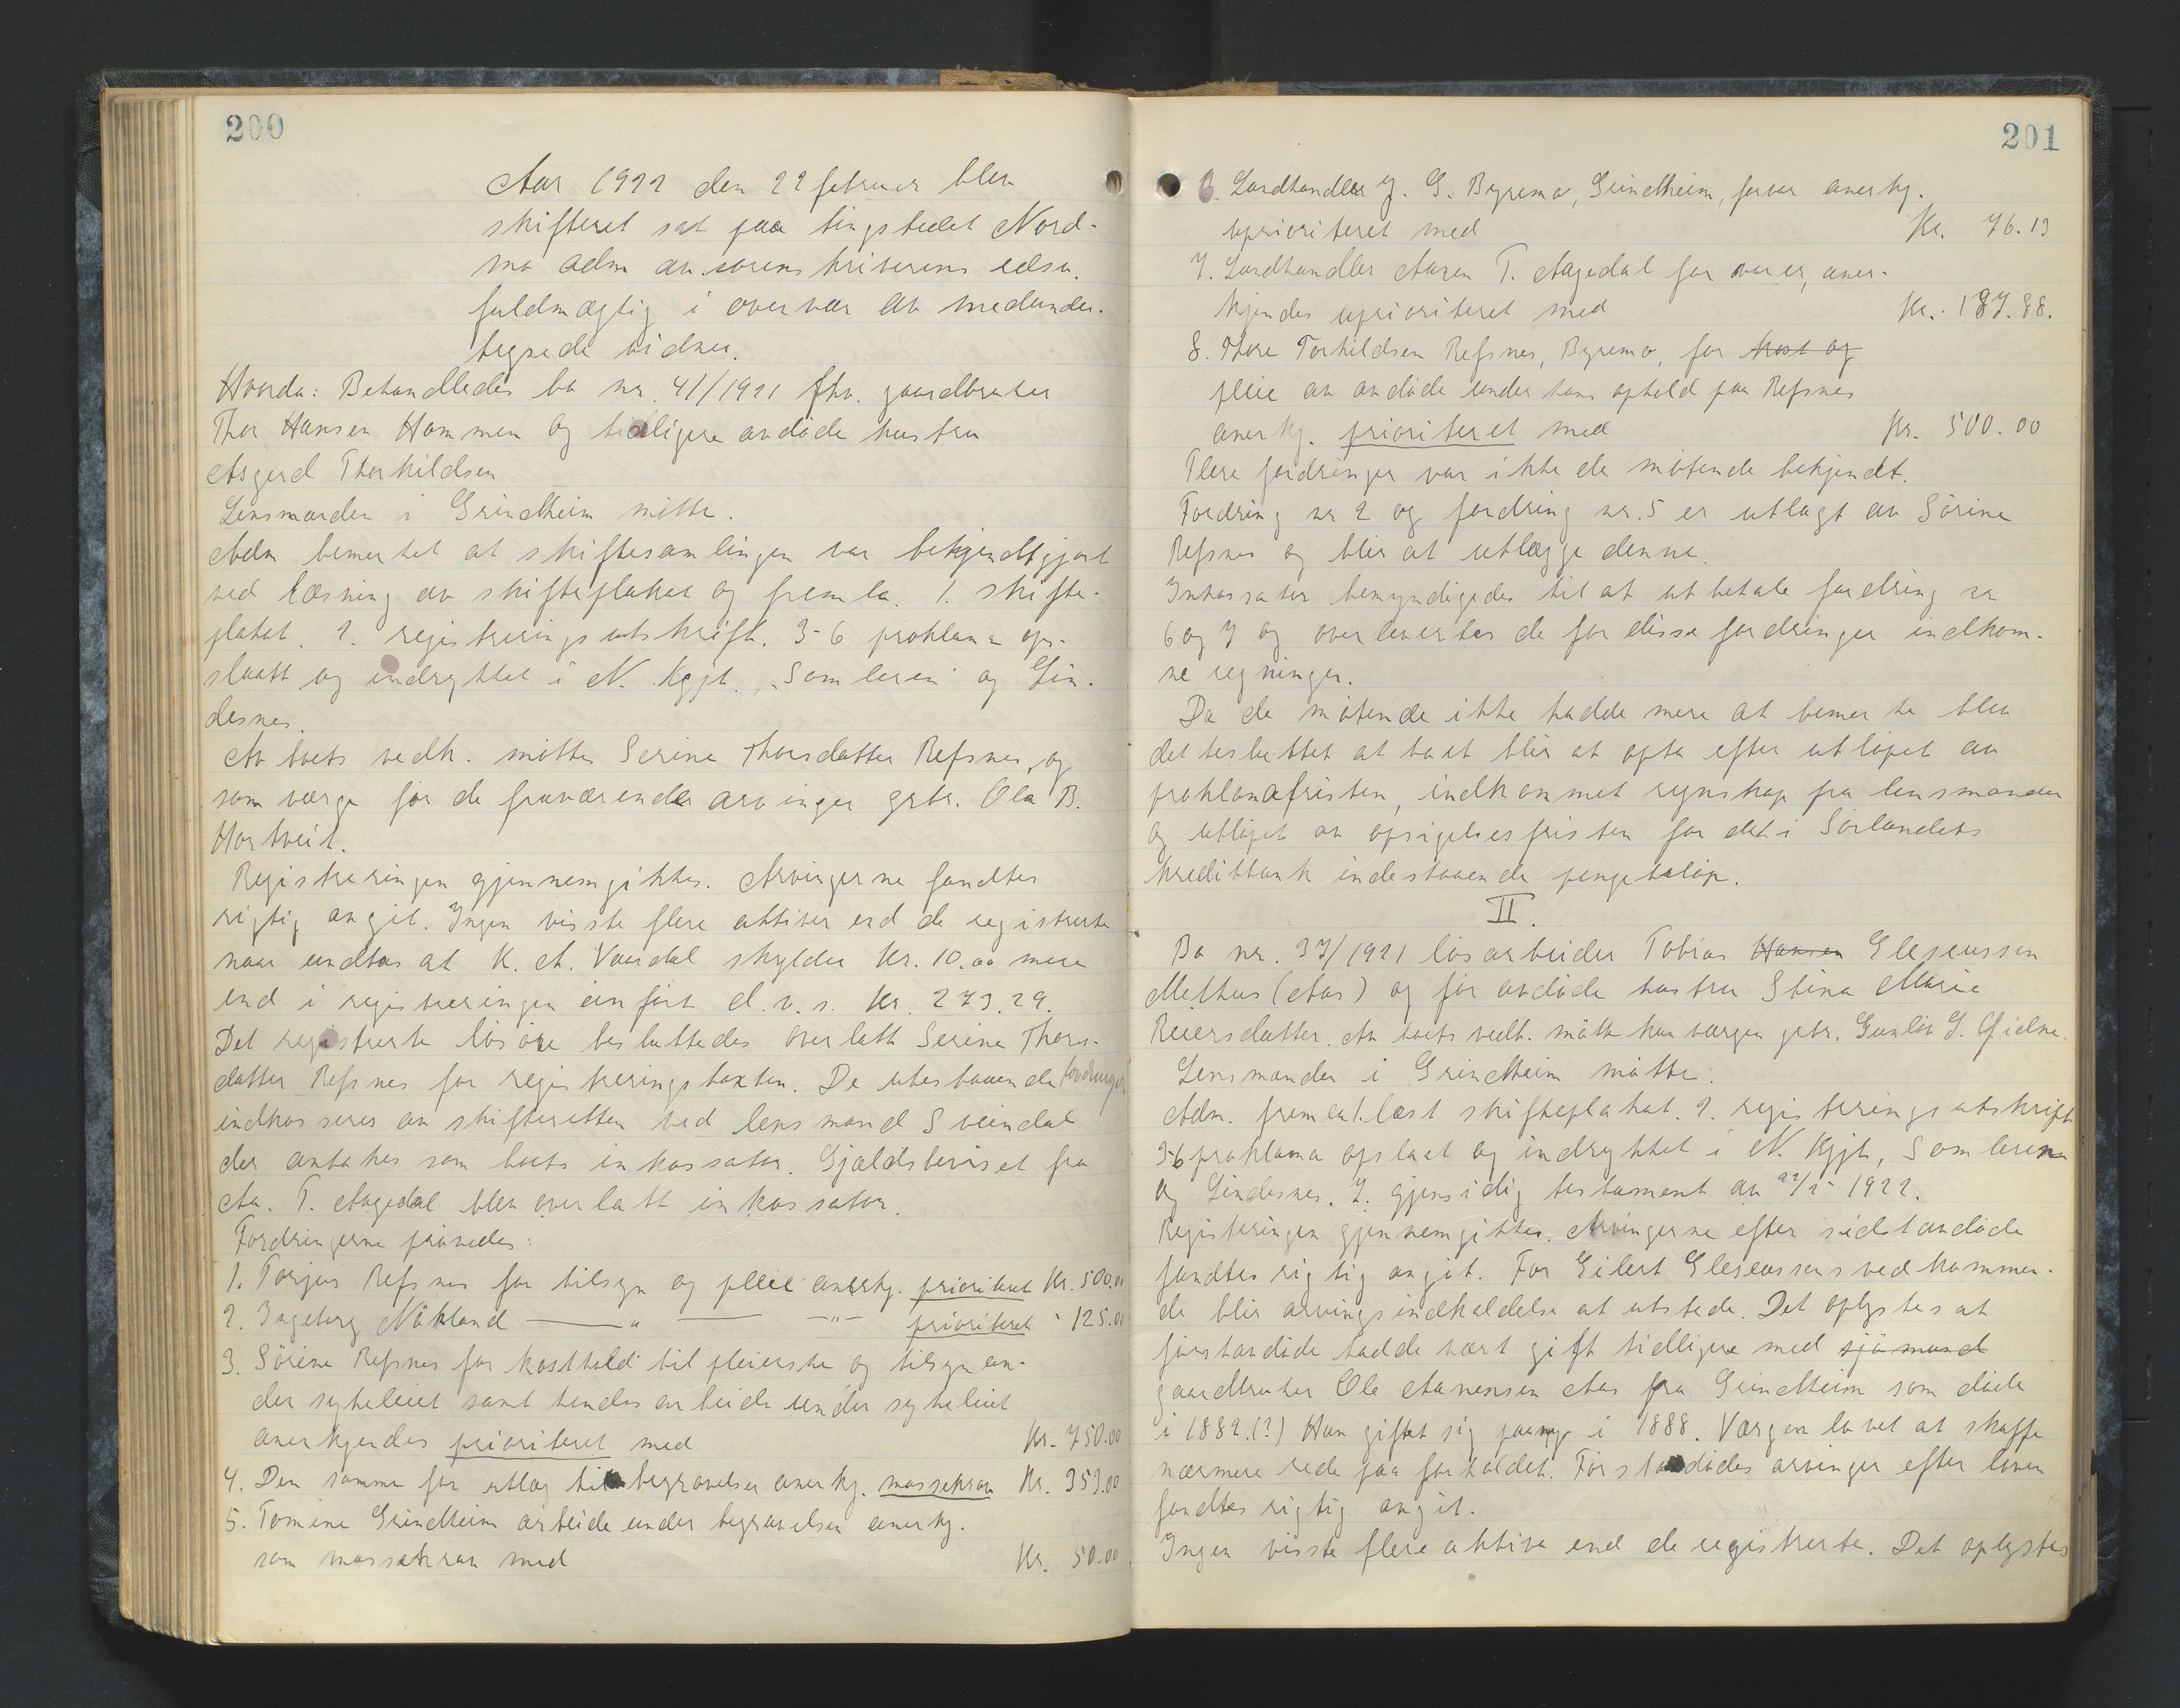 200
Aar 1922 den 22 februar blev
skifteret sat paa tingstedet Nord-
mo adm av sorenskriverens edsv.
fuldmægtig i overvær av medunder-
tegnede vidner.
Hvorda: Behandledes bo nr. 41/1921 fhv. gaardbruker
Thor Hansen Hommen og tidligere avdøde hustru
Asgerd Thorkildsen
Lensmanden i Grindheim møtte.
Adm bemerket at skiftesamlingen var bekjendtgjort
ved læsning av skifteplakat og fremla. 1. skifte-
plakat. 2. registreringsutskrift. 3-6 proklama op-
slaatt og indrykket i N. Kgjt. "Samleren" og Lin-
desnes.
Av boets vedk. møtte Serine Thorsdatter Refsnes, og
som værge for de fraværende arvinger grbr. Ola B.
Hortveit.
Registreringen gjennemgikkes. Arvingerne fandtes
rigtig angit. Ingen visste flere aktiver end de registrerte
naar undtas at K. A. Vaardal skylder Kr. 10.00 mere
end i registreringen anført d.v.s. Kr. 273.29.
Det registrerte løsøre besluttedes overlatt Serine Thors-
datter Refsnes for registreringstaxten. De utestaaende fordringer
indkasseres av skifteretten ved lensmand Sveindal
der antakes som boets inkassator. Gjældsbeviset fra
Aa. T. Aagedal blev overlatt inkassator.
Fordringerne prøvedes:
1. Torjus Refsnes for tilsyn og pleie anerkj. prioritert Kr. 500.00
2. Ingeborg Nökland — " — — " — prioriteret " 125.00
3. Sörine Refsnes for kosthold til pleierske og tilsyn un-
der sykeleiet samt hendes arbeide under sykeleiet
anerkjendes prioriteret med Kr. 750.00
4. Den samme for utlæg til begravelse anerkj. massekrav Kr. 353.00
5. Tomine Grindheim arbeide under begravelsen anerkj.
som massekrav med Kr. 50.00
201
6. Landhandler J. G. Byremo, Grindheim, for var anerkj.
uprioriteret med Kr. 76.13
7. Landhandler Aanen T. Aagedal for varer, aner-
kjendes uprioriteret med Kr. 187.88.
8. Thore Torkildsen Refsnes, Byremo, for kost og
pleie av avdøde under hans ophold paa Refsnes
anerkj. prioriteret med Kr. 500.00
Flere fordringer var ikke de møtende bekjendt.
Fordring nr 2 og fordring nr. 5 er utlagt av Sörine
Refsnes og blir at utlægge denne.
Inkassator bemyndigedes til at utbetale fordring nr
6 og 7 og overlevertes de for disse fordringer indkom-
ne regninger.
Da de møtende ikke hadde mere at bemerke blev
det besluttet at boet blir at opta efter utløpet av
proklamafristen, indkommet regnskap fra lensmanden
og utløpet av opsigelsesfristen for det i Sørlandets
kreditbank indestaaende pengebeløp.
II.
Bo nr. 37/1921 løsarbeider Tobias Hansen Gleseussen
Melhus (Aas) og før avdøde hustru Stina Marie
Reiersdatter. Av boets vedk. møtte kun værgen grbr. Gunløv G. Ofidne.
Lensmanden i Grindheim møtte.
Adm. fremla 1. læst skifteplakat. 2. registreringsutskrift
3-6 proklama opslaat og indrykket i N. Kgjt, Samleren
og Lindesnes. 7. gjensidig testament av 22/2 1922.
Registeringen gjennemgikkes. Arvingerne efter sidstavdøde
fandtes rigtig angit. For Eilert Gleseussens vedkommen-
de blir arvingsindkaldelse at utstede. Det oplystes at
førstavdøde hadde vært gift tidligere med sjømand
gaardbruker Ole Aanensen Aas fra Grindheim som døde
i 1882.(?) Hun giftet sig paany i 1888. Værgen lovet at skaffe
nærmere rede paa forholdet. Førstavdødes arvinger efter loven
fandtes rigtig angit.
Ingen visste flere aktiva end de registrerte. Det oplystes